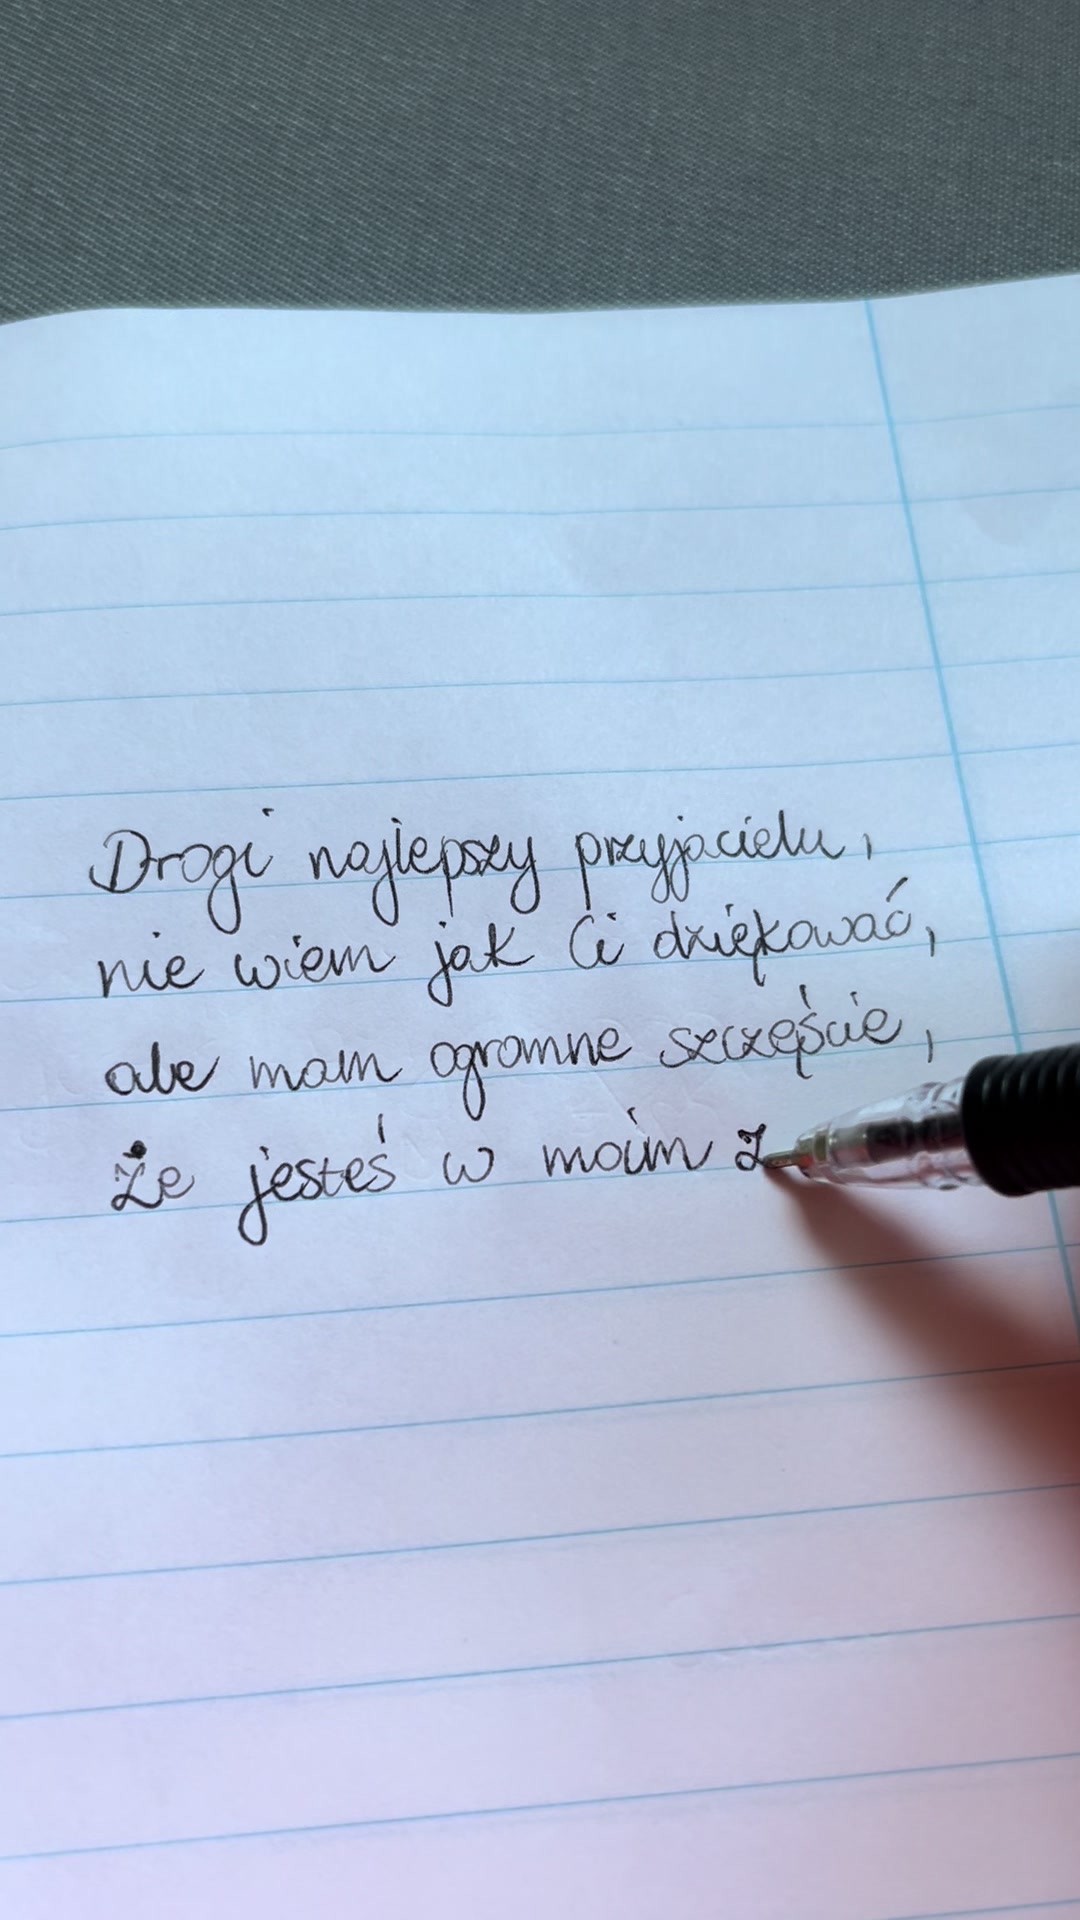 Drogi najlepszy przyjacielu,
nie wiem jak Ci dziękować,
ale mam ogromne szczęście,
że jesteś w moim z